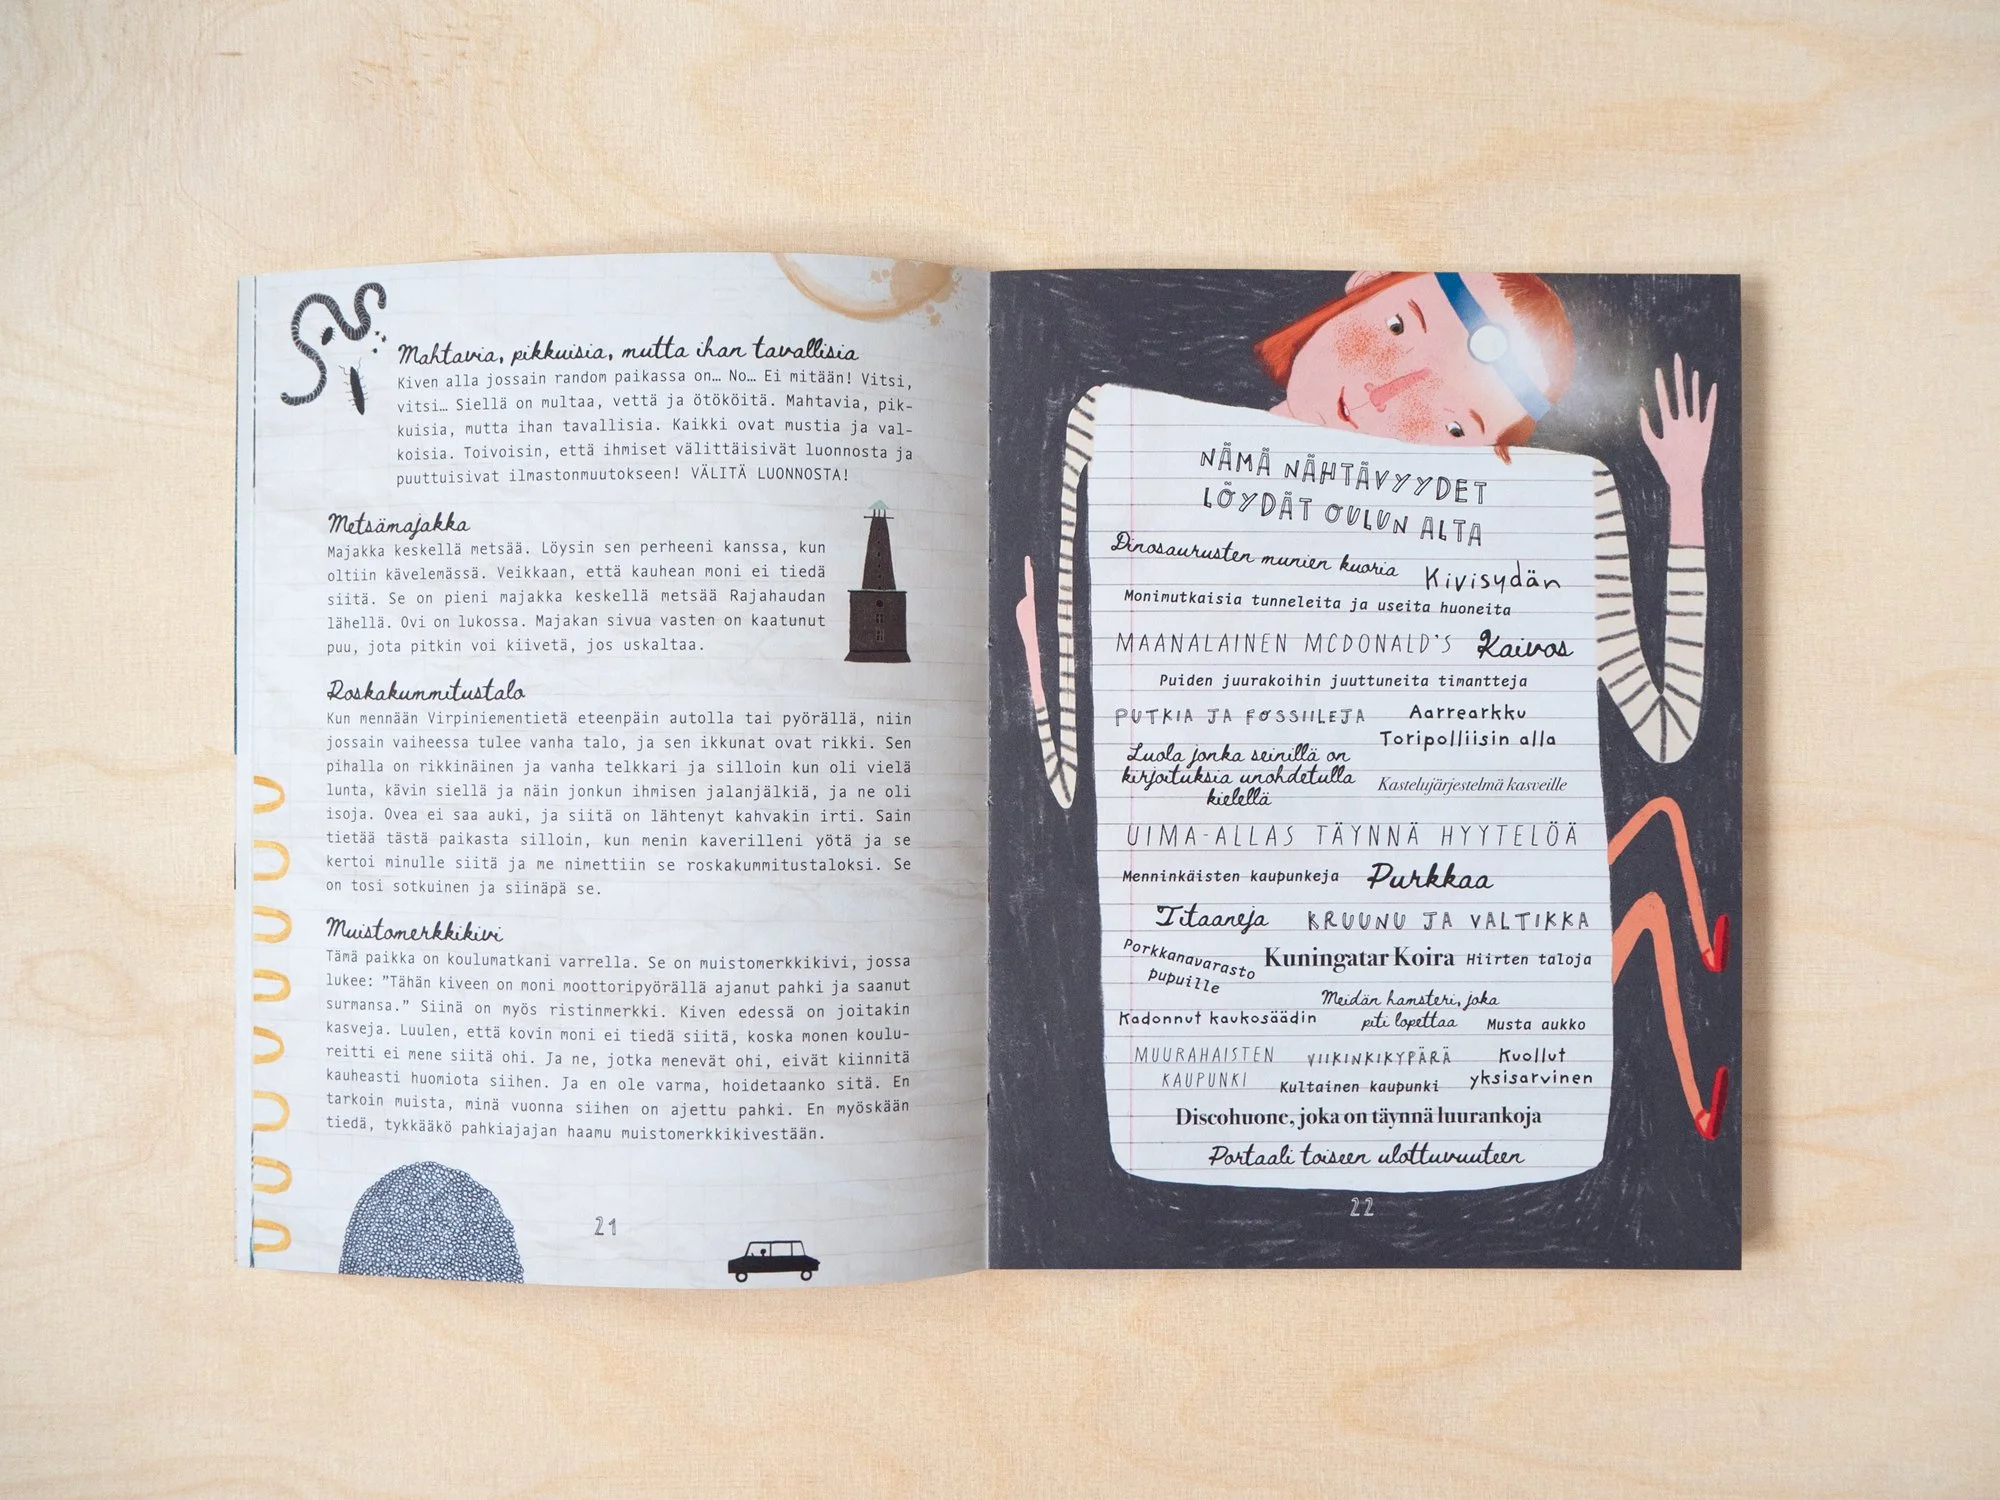 Mahtavia, pikkuisia, mutta ihan tavallisia
Kiven alla jossain random paikassa on… No… Ei mitään! Vitsi,
vitsi… Siellä on multaa, vettä ja ötököitä. Mahtavia, pik-
kuisia, mutta ihan tavallisia. Kaikki ovat mustia ja val-
koisia. Toivoisin, että ihmiset välittäisivät luonnosta ja
puuttuisivat ilmastonmuutokseen! VÄLITÄ LUONNOSTA!
Metsämajakka
Majakka keskellä metsää. Löysin sen perheeni kanssa, kun
oltiin kävelemässä. Veikkaan, että kauhean moni ei tiedä
siitä. Se on pieni majakka keskellä metsää Rajahaudan
lähellä. Ovi on lukossa. Majakan sivua vasten on kaatunut
puu, jota pitkin voi kiivetä, jos uskaltaa.
Roskakummitustalo
Kun mennään Virpiniementietä eteenpäin autolla tai pyörällä, niin
jossain vaiheessa tulee vanha talo, ja sen ikkunat ovat rikki. Sen
pihalla on rikkinäinen ja vanha telkkari ja silloin kun oli vielä
lunta, kävin siellä ja näin jonkun ihmisen jalanjälkiä, ja ne oli
isoja. Ovea ei saa auki, ja siitä on lähtenyt kahvakin irti. Sain
tietää tästä paikasta silloin, kun menin kaverilleni yötä ja se
kertoi minulle siitä ja me nimettiin se roskakummitustaloksi. Se
on tosi sotkuinen ja siinäpä se.
Muistomerkkikivi
Tämä paikka on koulumatkani varrella. Se on muistomerkkikivi, jossa
lukee: ”Tähän kiveen on moni moottoripyörällä ajanut pahki ja saanut
surmansa.” Siinä on myös ristinmerkki. Kiven edessä on joitakin
kasveja. Luulen, että kovin moni ei tiedä siitä, koska monen koulu-
reitti ei mene siitä ohi. Ja ne, jotka menevät ohi, eivät kiinnitä
kauheasti huomiota siihen. Ja en ole varma, hoidetaanko sitä. En
tarkoin muista, minä vuonna siihen on ajettu pahki. En myöskään
tiedä, tykkääkö pahkiajajan haamu muistomerkkikivestään.
21
NÄMÄ NÄHTÄVYYDET
LÖYDÄT OULUN ALTA
Dinosaurusten munien kuoria
Kivisydän
Monimutkaisia tunneleita ja useita huoneita
MAANALAINEN MCDONALD'S Kaivos
Puiden juurakoihin juuttuneita timantteja
PUTKIA JA FOSSIILEJA
Aarrearkku
Toripolliisin alla
Luola jonka seinillä on
kirjoituksia unohdetulla
kielellä
Kastelujärjestelmä kasveille
UIMA-ALLAS TÄYNNÄ HYYTELÖÄ
Menninkäisten kaupunkeja Purkkaa
Titaaneja KRUUNU JA VALTIKKA
Porkkanavarasto
pupuille
Kuningatar Koira Hiirten taloja
Kadonnut kaukosäädin
Meidän hamsteri, joka
piti lopettaa
Musta aukko
MUURAHAISTEN
KAUPUNKI
VIIKINKIKYPÄRÄ
Kultainen kaupunki
Kuollut
yksisarvinen
Discohuone, joka on täynnä luurankoja
Portaali toiseen ulottuvuuteen
22